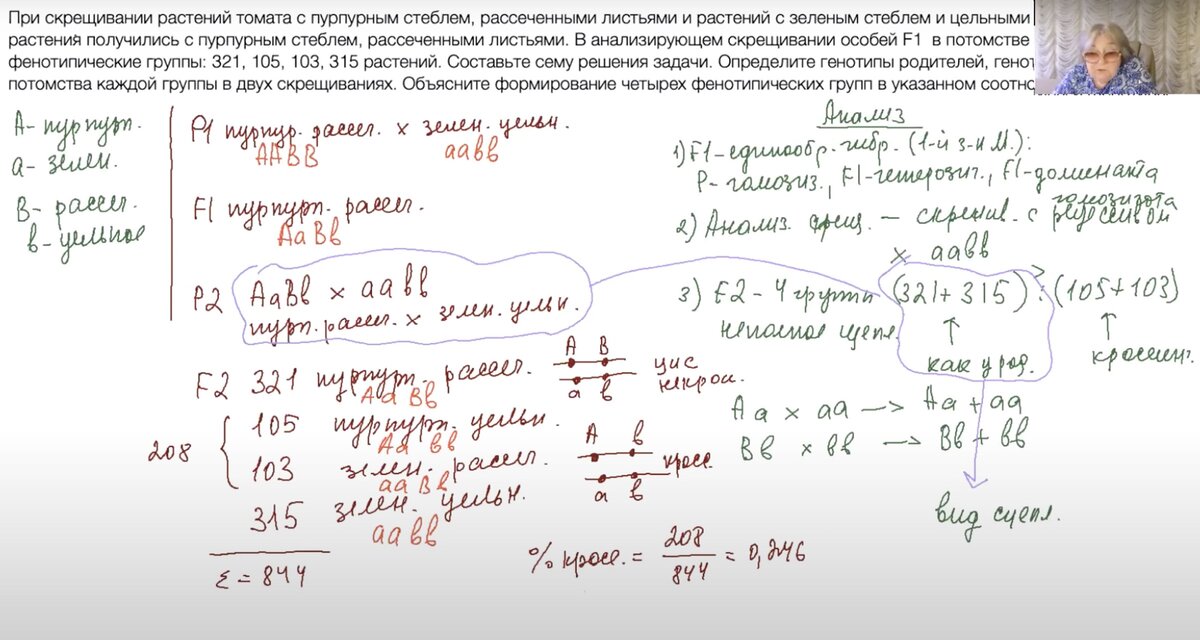 При скрещивании растений томата с пурпурным стеблем, рассеченными листьями и растений с зеленым стеблем и цельными
растения получились с пурпурным стеблем, рассеченными листьями. В анализирующем скрещивании особей F1 в потомстве
фенотипические группы: 321, 105, 103, 315 растений. Составьте сему решения задачи. Определите генотипы родителей, гено
потомства каждой группы в двух скрещиваниях. Объясните формирование четырех фенотипических групп в указанном соотн
А- пурпурн.
а- зелен.
В- рассеч.
в- цельное
P1 пурпур. рассеч. х зелен. цельн.
ААВВ аавв
F1 пурпурн. рассеч.
АаВв
P2 АаВв х аавв
пурп. рассеч. х зелен. цельн.
F2 321 пурпурн. рассеч.
Аа Вв
А В
а в
цис
некрос.
208
105 пурпурн. цельн.
Аа вв
103 зелен. рассеч.
аа Вв
А в
а в
кросс.
315 зелен. цельн.
аа вв
Σ = 844
% кросс. = 208/844 = 0,246
Анализ
1) F1-единообр. гибр. (1-й з-н М.):
P- гомозиг., F1-гетерозиг., F1-доминанта
гомозигота
2) Анализ. скрещ. – скрещив. с рецессивом
х аавв
3) F2 - 4 группы (321+315) : (105+103)
?
неполное сцепл.
как у род.
кроссинг.
Аа х аа —> Аа + аа
Вв х вв —> Вв + вв
вид сцепл.